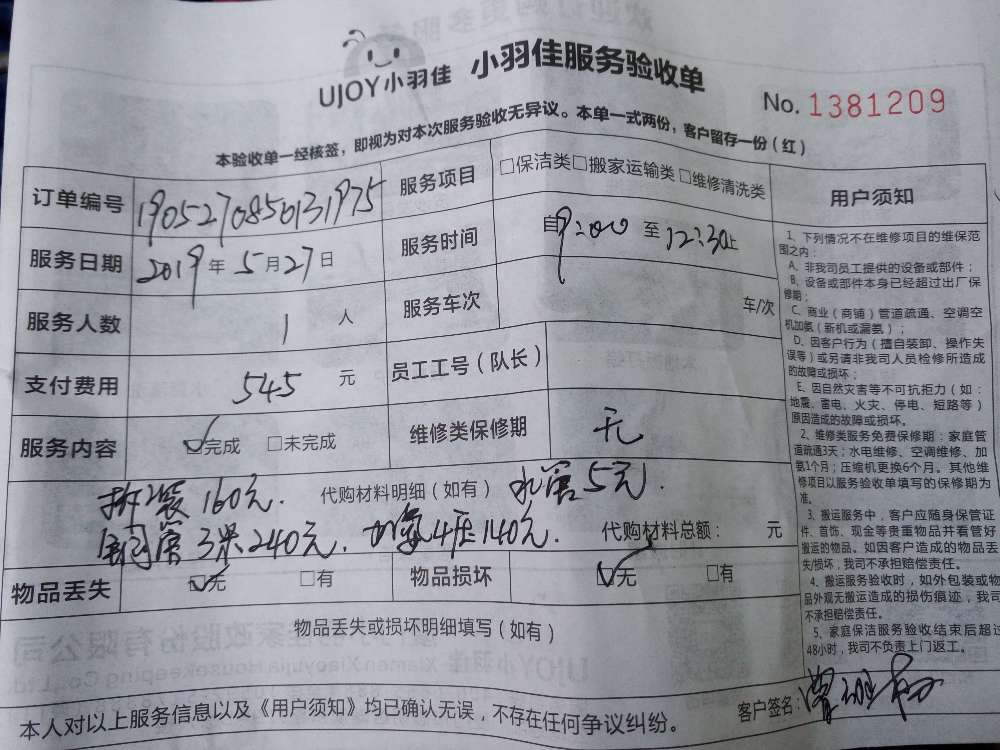 UJOY小羽佳 小羽佳服务验收单
No. 1381209
本验收单一经核签，即视为对本次服务验收无异议。本单一式两份，客户留存一份（红）
订单编号 1905270850131975 服务项目 □保洁类□搬家运输类□维修清洗类
服务日期 2019年5月27日 服务时间 自9:00至12:30止
服务人数 1人 服务车次 车/次
支付费用 545元 员工工号（队长）
服务内容 ☑完成 □未完成 维修类保修期 无
拆装160元. 代购材料明细（如有） 水管5元.
铜管3米240元. 加氟4压140元. 代购材料总额： 元
物品丢失 ☑无 □有 物品损坏 ☑无 □有
物品丢失或损坏明细填写（如有）
本人对以上服务信息以及《用户须知》均已确认无误，不存在任何争议纠纷。
客户签名：
用户须知
1、下列情况不在维修项目的维保范
围之内：
A、非我司员工提供的设备或部件；
B、设备或部件本身已经超过出厂保
修期；
C、商业（商铺）管道疏通、空调空
机加氨（新机或漏氨）；
D、因客户行为（擅自装卸、操作失
误等）或另请非我司人员检修所造成
的故障或损坏；
E、因自然灾害等不可抗拒力（如：
地震、雷电、火灾、停电、短路等）
原因造成的故障或损坏。
2、维修类服务免费保修期：家庭管
道疏通3天；水电维修、空调维修、加
氨1个月；压缩机更换6个月。其他维
修项目以服务验收单填写的保修期为
准。
3、搬运服务中，客户应随身保管证
件、首饰、现金等贵重物品并看管好
搬运的物品。如因客户造成的物品丢
失/损坏，我司不承担赔偿责任。
4、搬运服务验收时，如外包装或物
品外观无搬运造成的损伤痕迹，我司
不承担赔偿责任。
5、家庭保洁服务验收结束后超过
48小时，我司不负责上门返工。